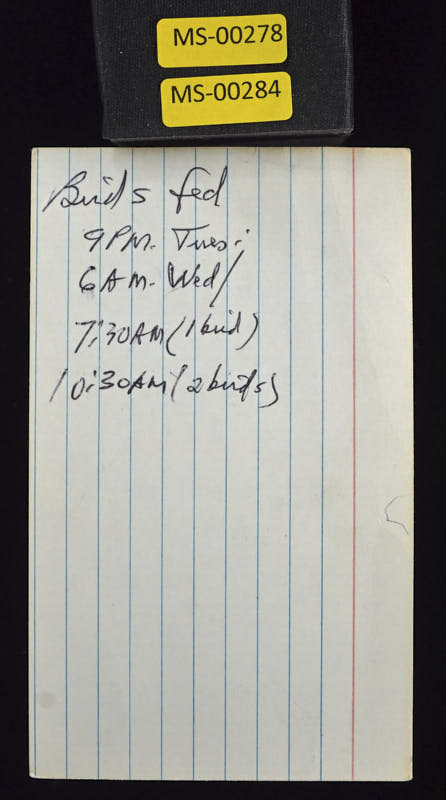 MS-00278
MS-00284
Birds fed
9PM. Tues.
6AM. Wed/
7:30AM (1 bird)
10:30AM (2 birds)